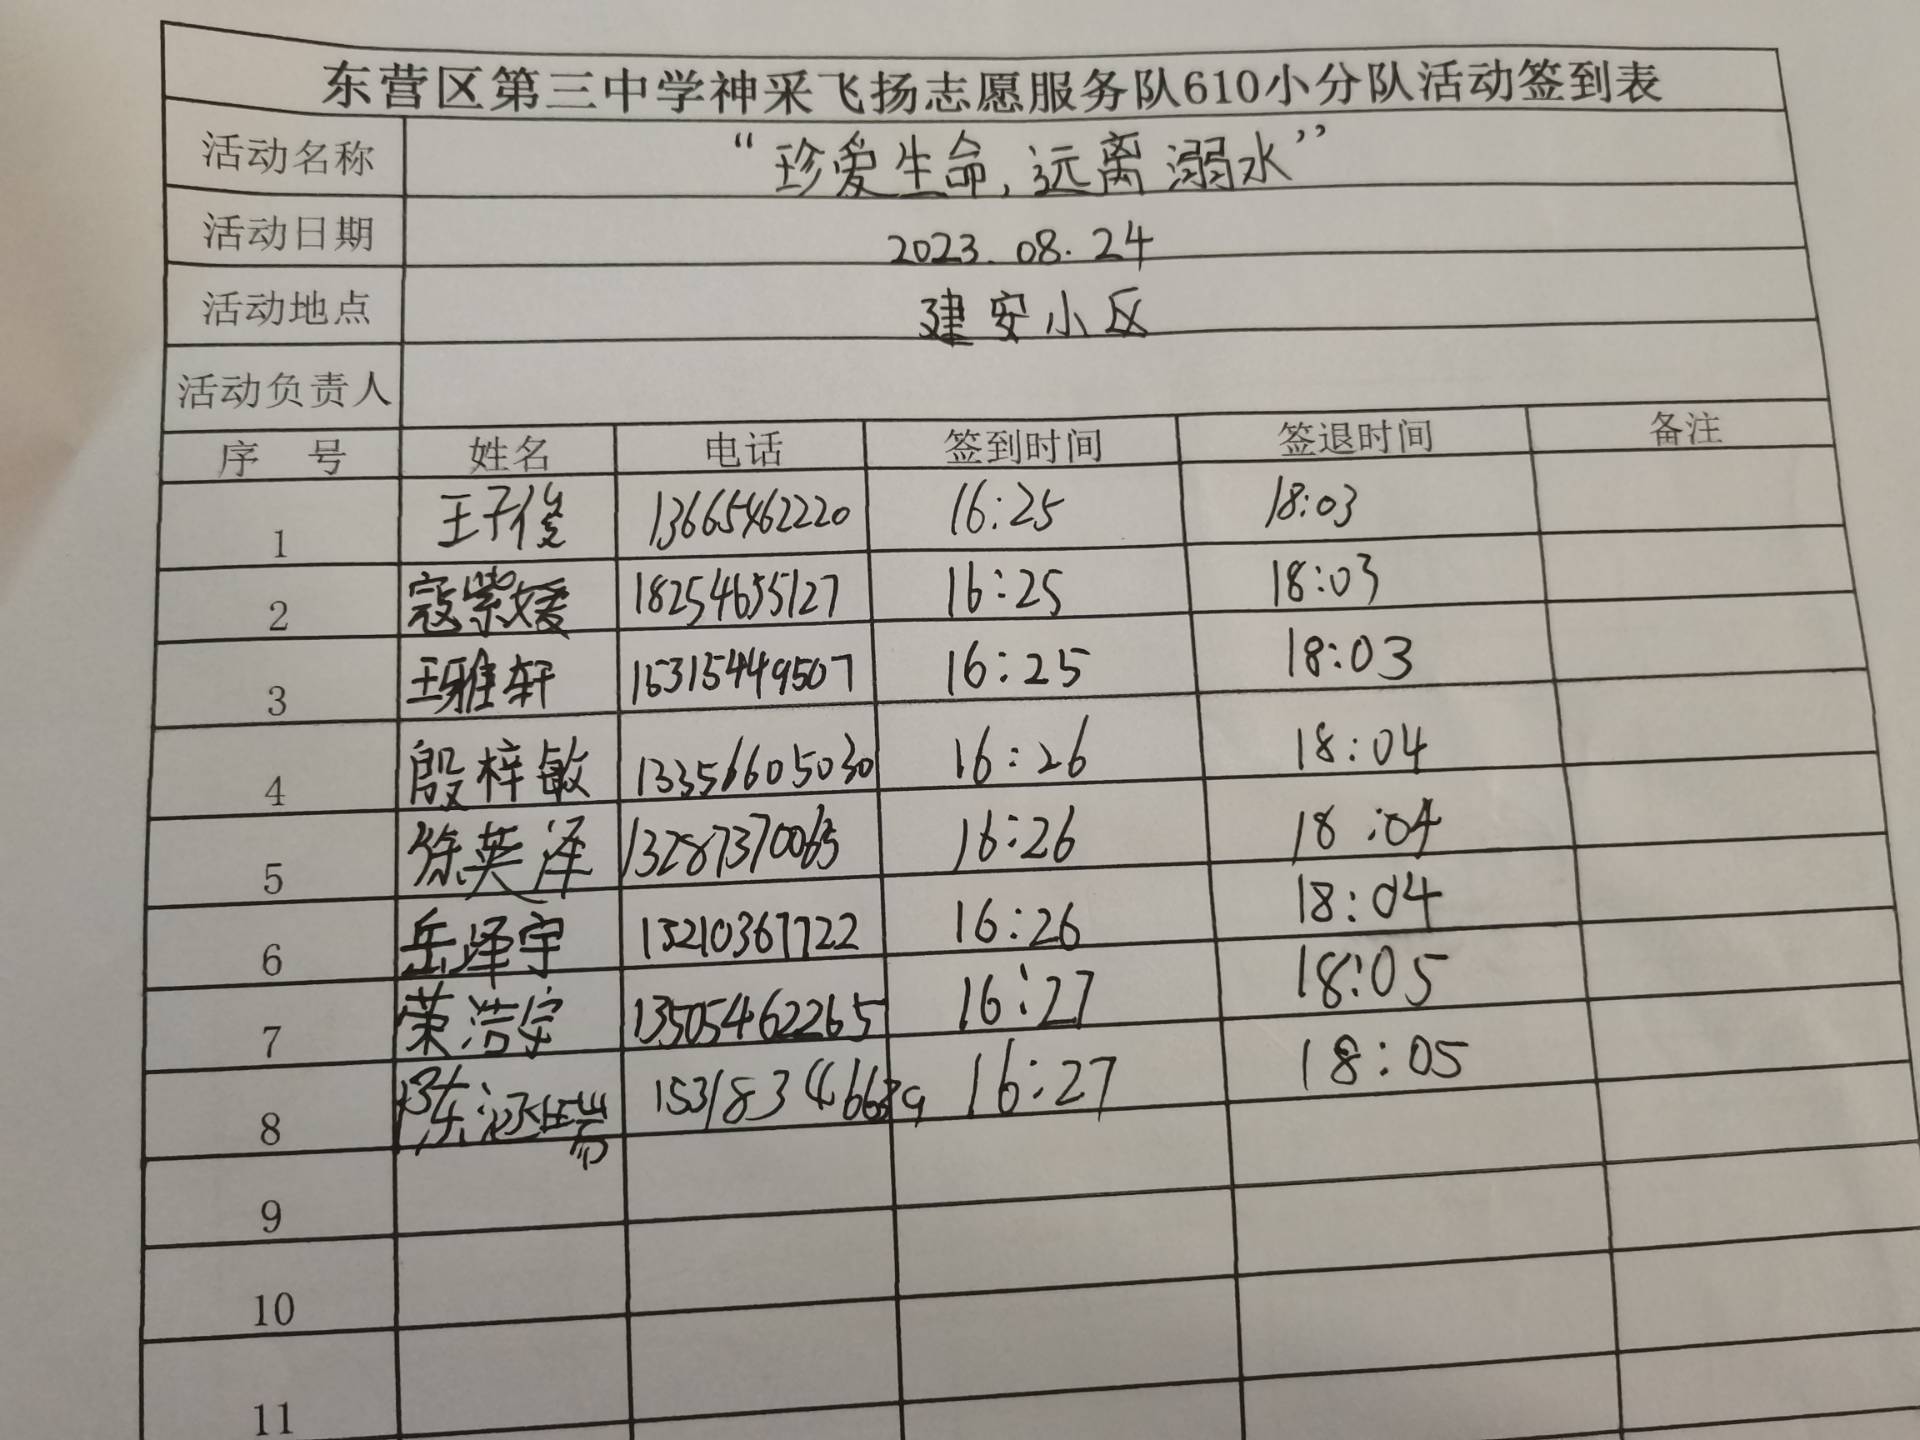 东营区第三中学神采飞扬志愿服务队610小分队活动签到表
活动名称 “珍爱生命,远离溺水”
活动日期 2023.08.24
活动地点 建安小区
活动负责人
序 号 姓名 电话 签到时间 签退时间 备注
1 王子俊 13665462220 16:25 18:03
2 寇紫媛 18254655127 16:25 18:03
3 王雅轩 15315449507 16:25 18:03
4 殷梓敏 13356605030 16:26 18:04
5 徐英泽 13287370065 16:26 18:04
6 岳泽宇 15210367722 16:26 18:04
7 荣浩宇 13505462265 16:27 18:05
8 陈涵瑞 16:27 18:05
9
10
11